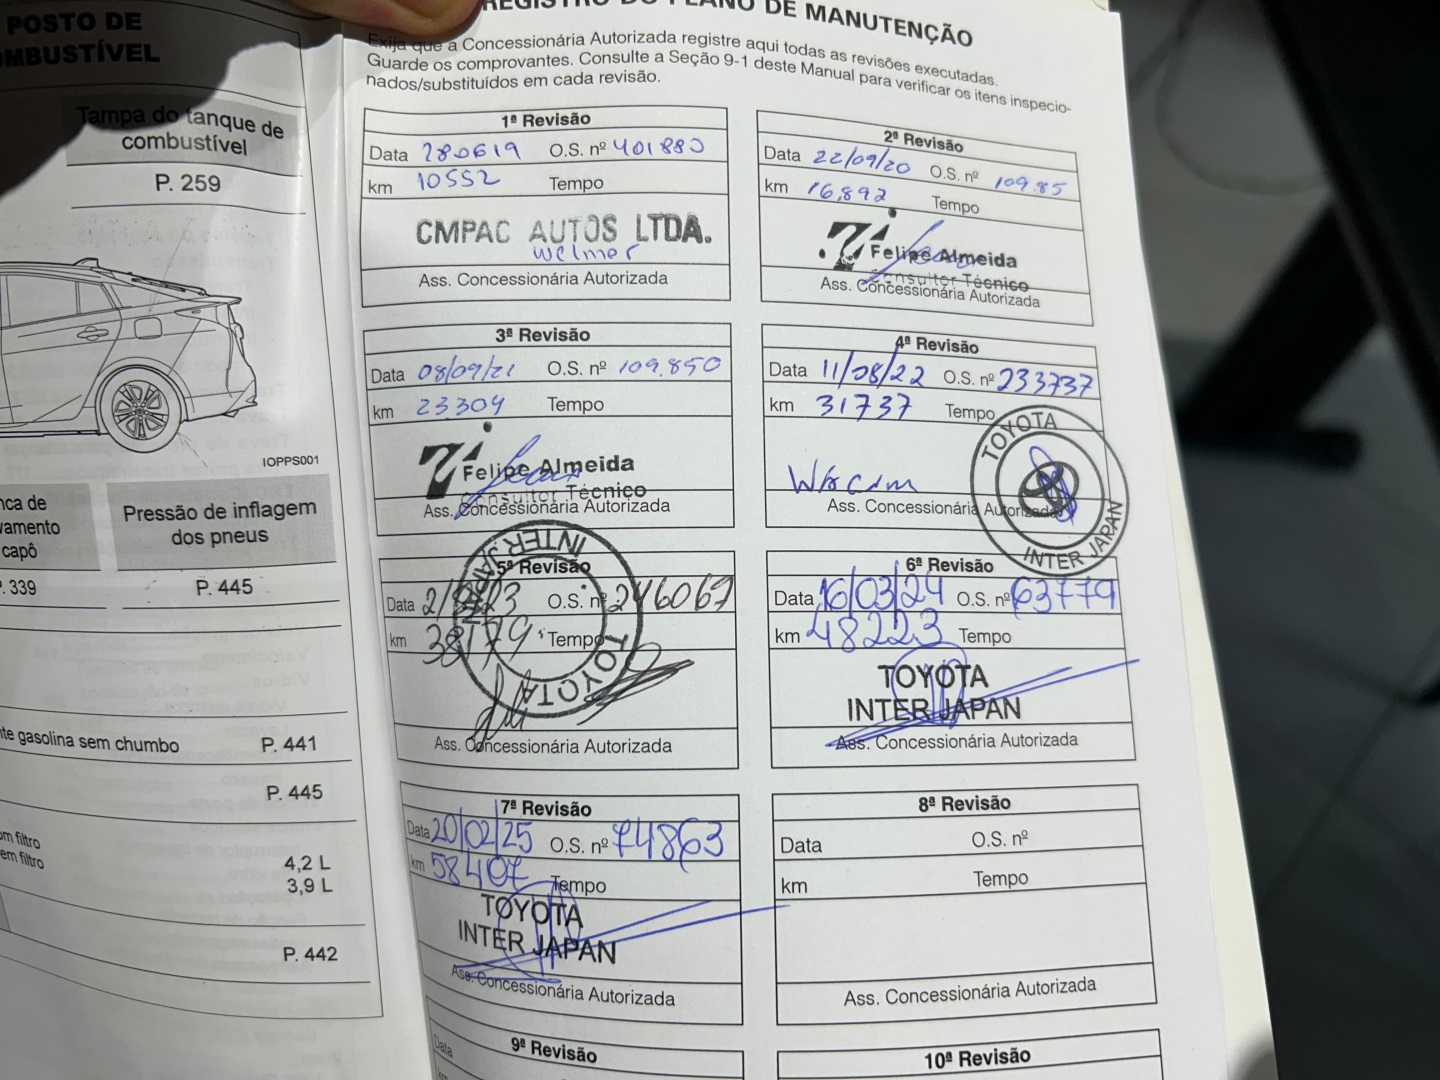 POSTO DE
COMBUSTÍVEL
Tampa do tanque de
combustível
P. 259
IOPPS001
Pressão de inflagem
dos pneus
capô
P. 339
P. 445
gasolina sem chumbo
P. 441
P. 445
filtro
filtro
4,2 L
3,9 L
P. 442
REGISTRO DO PLANO DE MANUTENÇÃO
Exija que a Concessionária Autorizada registre aqui todas as revisões executadas.
Guarde os comprovantes. Consulte a Seção 9-1 deste Manual para verificar os itens inspecio-
nados/substituídos em cada revisão.
1ª Revisão
Data 280619 O.S. nº 401880
km 10552 Tempo
CMPAC AUTOS LTDA.
Welmer
Ass. Concessionária Autorizada
2ª Revisão
Data 22/09/20 O.S. nº 109.85
km 16.892 Tempo
Felipe Almeida
Consultor Técnico
Ass. Concessionária Autorizada
3ª Revisão
Data 08/09/21 O.S. nº 109.850
km 23304 Tempo
Felipe Almeida
Consultor Técnico
Ass. Concessionária Autorizada
4ª Revisão
Data 11/08/22 O.S. nº 233737
km 31737 Tempo
TOYOTA
INTER JAPAN
Ass. Concessionária Autorizada
5ª Revisão
Data O.S. nº 246067
km 38179 Tempo
INTER JAPAN
TOYOTA
Ass. Concessionária Autorizada
6ª Revisão
Data 16/03/24 O.S. nº 63779
km 48223 Tempo
TOYOTA
INTER JAPAN
Ass. Concessionária Autorizada
7ª Revisão
Data 20/02/25 O.S. nº 74863
km 58407 Tempo
TOYOTA
INTER JAPAN
Ass. Concessionária Autorizada
8ª Revisão
Data O.S. nº
km Tempo
Ass. Concessionária Autorizada
9ª Revisão
Data
10ª Revisão